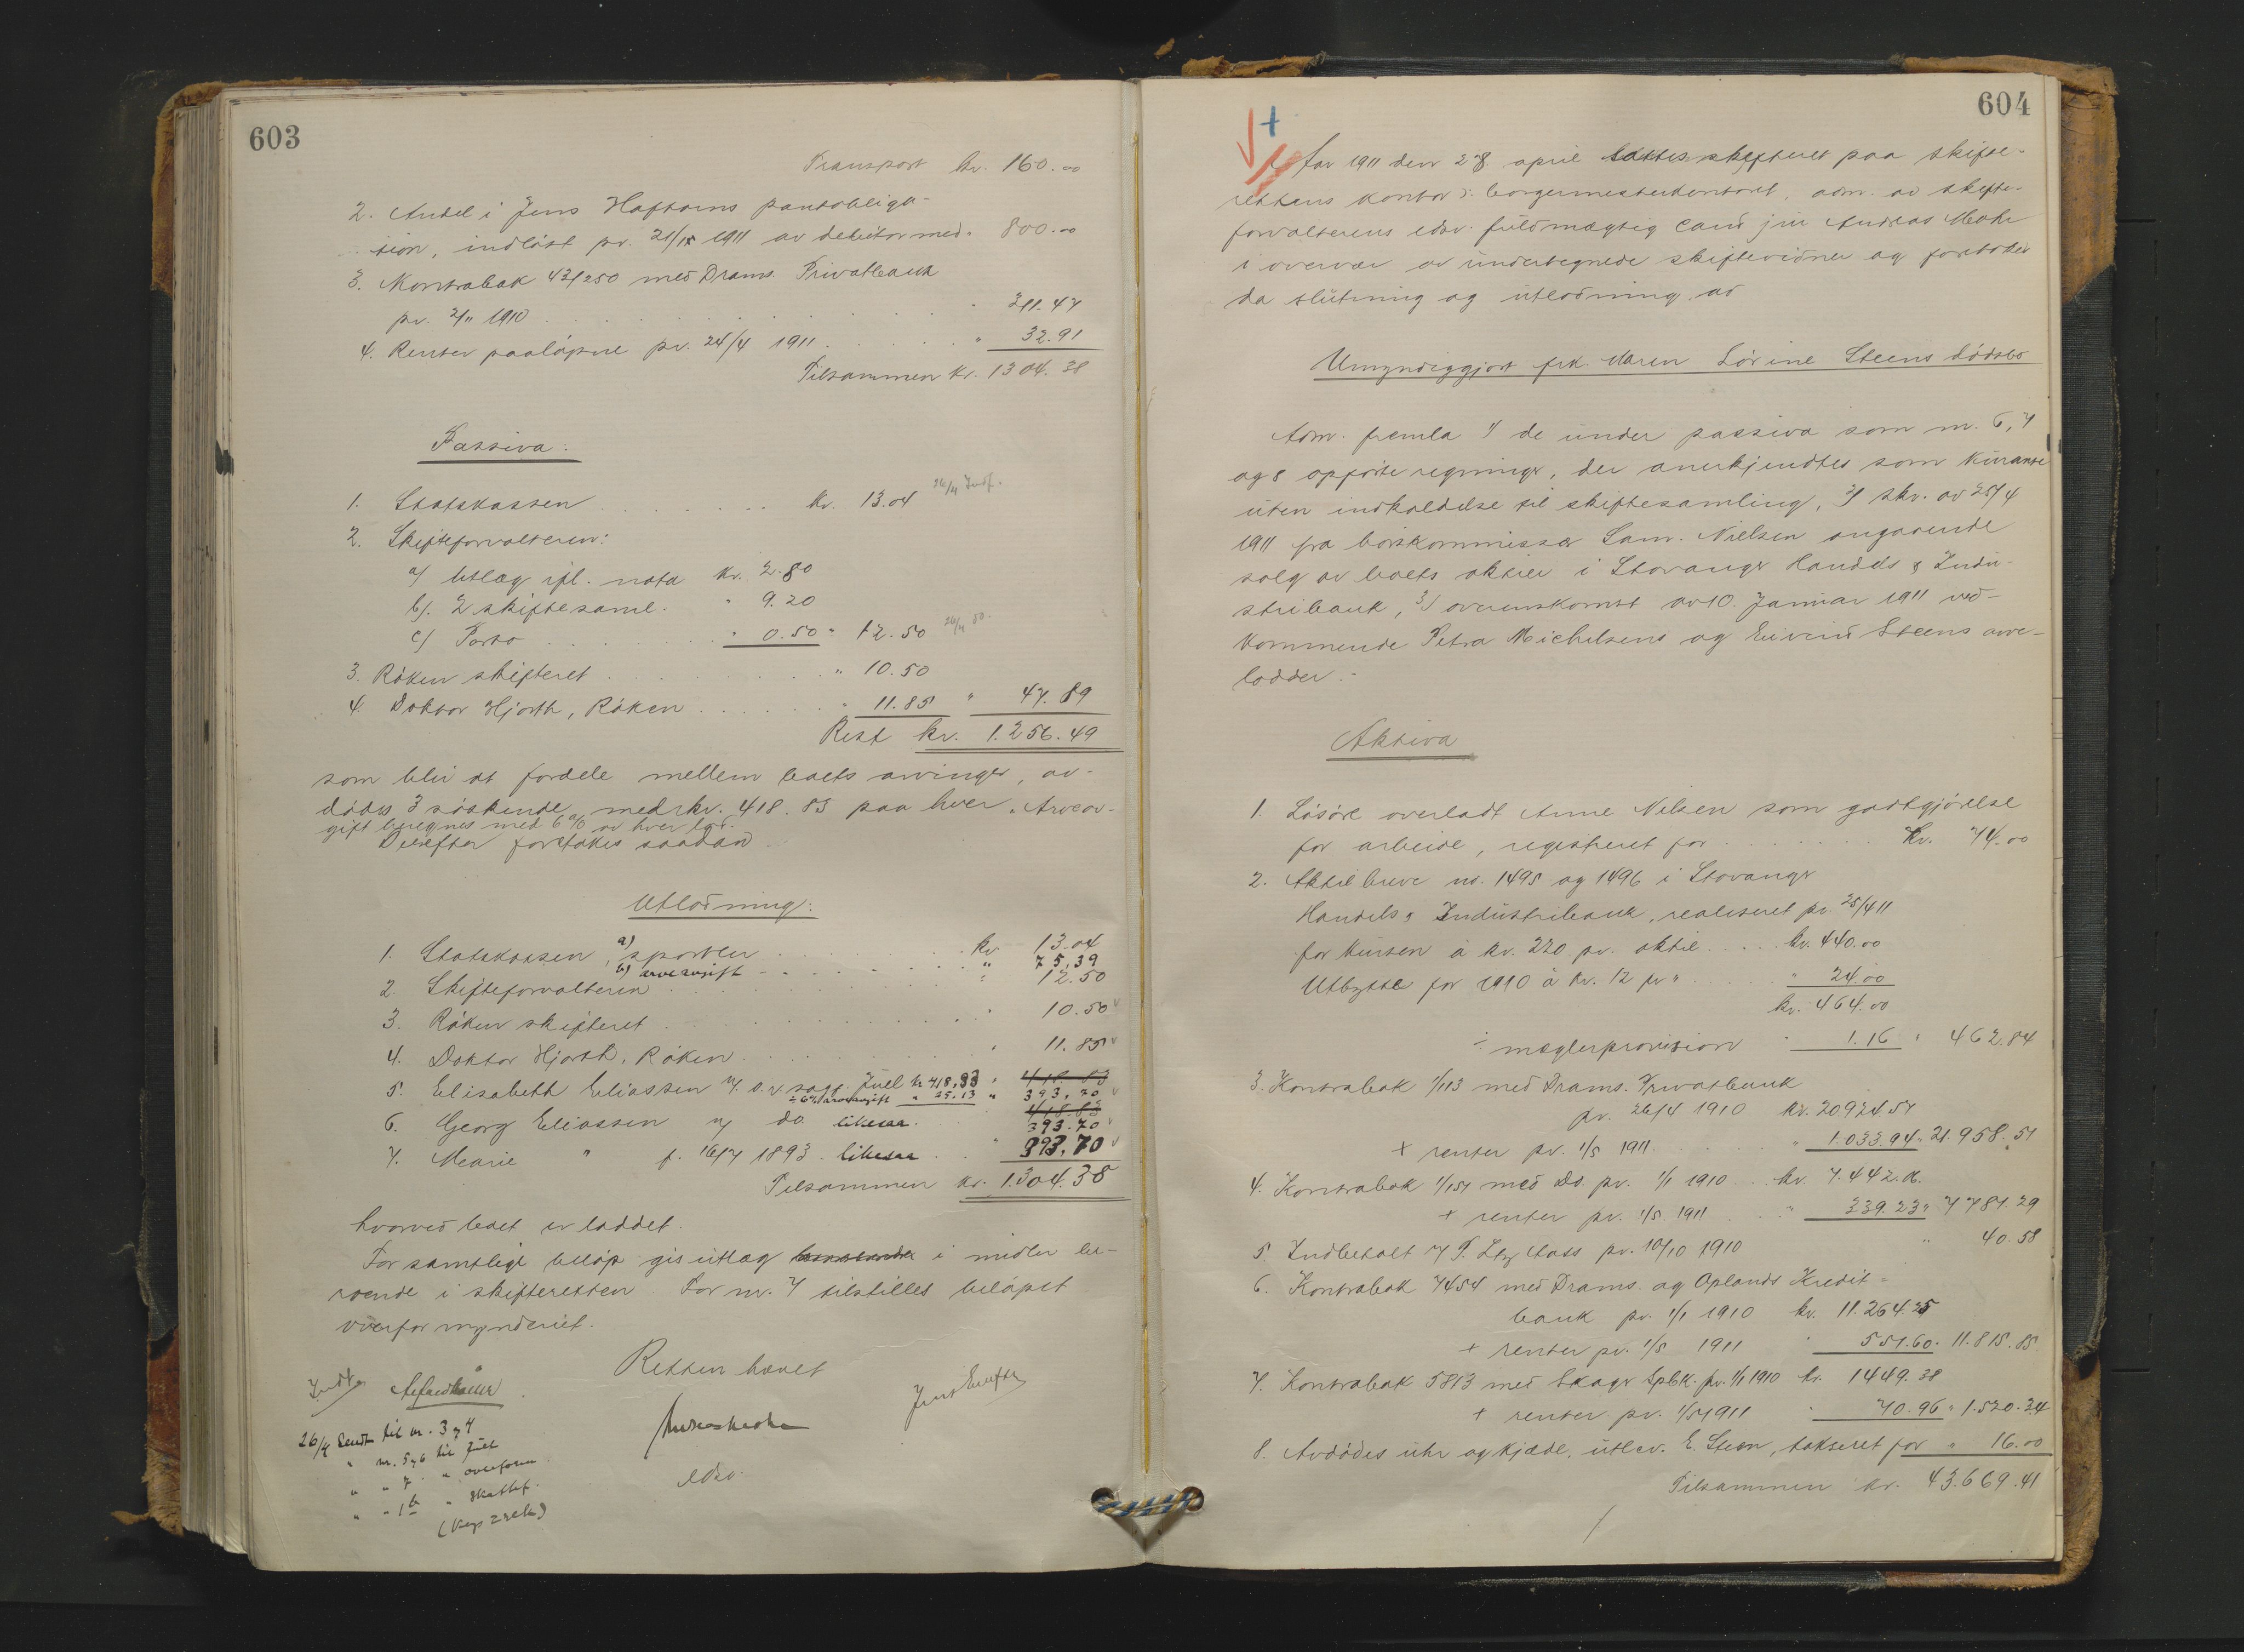 603
Transport kr. 160.00
2. Andel i Jens Haftorns pantobliga-
tion, indløst pr. 21/ 1911 av debitor med " 800.00
3. Kontrabok 43/250 med Drams. Privatbank
pr. 2/11 1910 . . . . " 311.47
4. Renter paaløpne pr. 24/4 1911 . . . . " 32.91
Tilsammen kr. 1304.38
Passiva:
1. Statskassen . . . . kr. 13.04 26/4 Indf.
2. Skifteforvalteren:
a) Utlæg ifl. nota kr. 2.80
b). 2 skiftesaml. " 9.20
c) Porto . . . " 0.50 " 12.50 26/4
3. Røken skifteret . . . . " 10.50
4. Doktor Hjorth, Røken . . . . " 11.85 " 47.89
Rest kr. 1.256.49
som blir at fordele mellem boets arvinger, av-
dødes 3 søskende med kr. 418.83 paa hver. Arveav-
gift beregnes med 6 % av hver lod.
Derefter foretokes saadan
Utlodning:
1. Statskassen, a) sportler . . . . kr. 13.04
b) arveavgift . . . . " 75.39
2. Skifteforvalteren . . . . " 12.50
3. Røken skifteret . . . . " 10.50
4. Doktor Hjorth, Røken . . . . " 11.85
5. Elisabeth Eliassen v. o.r. sagf. Juel kr 418,83 " 418.83
÷ 6% arveavgift " 25.13 " 393,70
6. Georg Eliassen v/ do. likesaa . . 418.83
393.70
7. Marie " f. 16/7 1893. likesaa . . " 393,70
Tilsammen kr. 1.304.38
hvorved boet er loddet.
For samtlige beløp gis utlæg i midler be-
roende i skifteretten. For nr. 7 tilstilles beløpet
overformynderiet.
Retten hævet
Andreas Mohr
edsv.
26/4 Sendt til nr. 3 & 4
" nr. 5 & 6 til Juel
" " 7 " overform.
" " 1 b " Skattef.
604
Aar 1911 den 28. april sattes skifteret paa skifte-
rettens kontor i borgermesterkontoret, adm. av skifte-
forvalterens edsv. fuldmægtig cand jur Andreas Mohr
i overvær av undertegnede skiftevidner og foretokes
da slutning og utlodning av
Umyndiggjort frk. Maren Lovine Steens dødsbo
Adm. fremla 1) de under passiva som nr. 6, 7
og 8 opførte regninger, der anerkjendtes som kurante
uten indkaldelse til skiftesamling, 2) skr. av 25/4
1911 fra børskommissær Sam. Nielsen angaaende
salg av boets aktier i Stavanger Handels & Indu-
stribank, 3) overenskomst av 10. Januar 1911 ved-
kommende Petra Michelsens og Eivind Steens arve-
lodder.-
Aktiva
1. Løsøre overladt Anne Nilsen som godtgjørelse
for arbeide, registreret for . . . . Kr. 74.00
2. Aktiebreve nr. 1495 og 1496 i Stavanger
Handels & Industribank, realiseret pr. 25/4 11
for kursen à kr. 220 pr. aktie . . . kr. 440.00
Utbytte for 1910 à kr. 12 pr " . . . " 24.00
kr. 464.00
÷ mæglerprovision " 1.16 " 462.84
3. Kontrabok 1/113 med Drams. Privatbank
pr. 26/4 1910 kr. 20924.57
+ renter pr. 1/5 1911 . . . " 1.033.94 " 21.958.51
4. Kontrabok 1/151 med do. pr. 1/1 1910 . . kr. 7.442.06
+ renter pr. 1/5 1911 . . " 339.23 " 7781.29
5. Indbetalt v/ P. Ltz Aass pr. 10/10 1910 " 40.58
6. Kontrabok 7454 med Drams. og Oplands Kredit-
bank pr. 1/1 1910 kr. 11.264.25
+ renter pr. 1/5 1911 " 551.60 " 11.815.85
7. Kontrabok 5813 med Skoger Spbk. pr. 1/1 1910 kr. 1449.38
+ renter pr. 1/5 1911 " 70.96 " 1.520.34
8. Avdødes uhr og kjæde, utlev. E. Steen, takseret for " 16.00
Tilsammen kr. 43.669.41